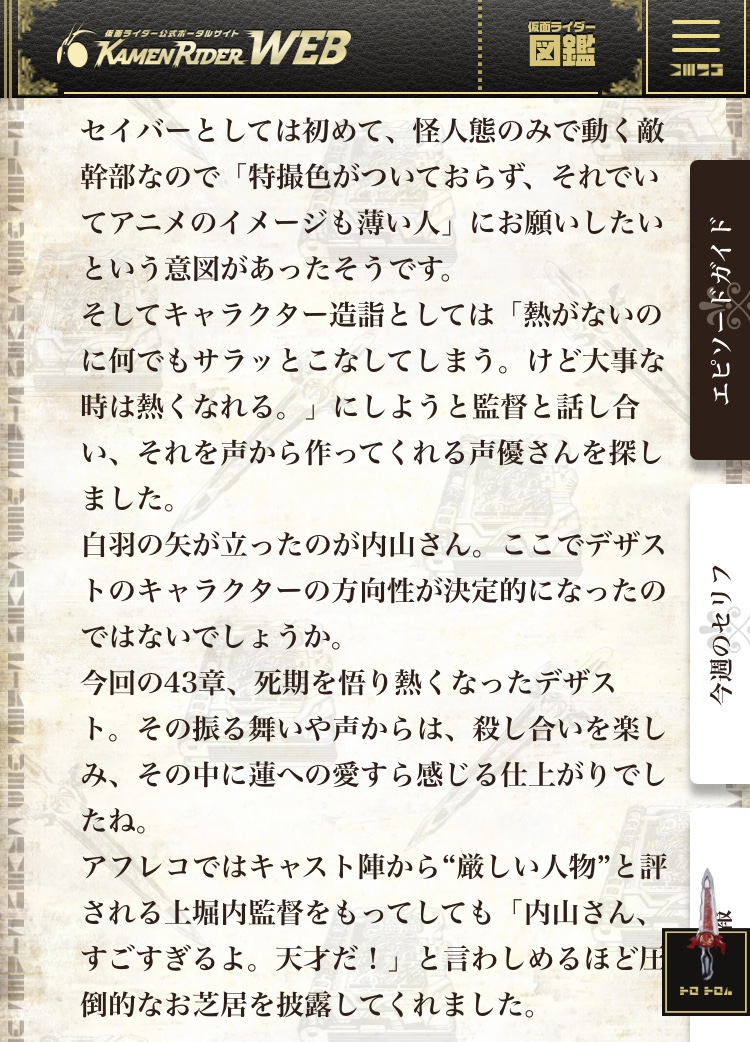 仮面ライダー公式ポータルサイト
KAMEN RIDER WEB
仮面ライダー
図鑑
セイバーとしては初めて、怪人態のみで動く敵
幹部なので「特撮色がついておらず、それでい
てアニメのイメージも薄い人」にお願いしたい
という意図があったそうです。
そしてキャラクター造詣としては「熱がないの
に何でもサラッとこなしてしまう。けど大事な
時は熱くなれる。」にしようと監督と話し合
い、それを声から作ってくれる声優さんを探し
ました。
白羽の矢が立ったのが内山さん。ここでデザス
トのキャラクターの方向性が決定的になったの
ではないでしょうか。
今回の43章、死期を悟り熱くなったデザス
ト。その振る舞いや声からは、殺し合いを楽し
み、その中に蓮への愛すら感じる仕上がりでし
たね。
アフレコではキャスト陣から“厳しい人物”と評
される上堀内監督をもってしても「内山さん、
すごすぎるよ。天才だ！」と言わしめるほど圧
倒的なお芝居を披露してくれました。
エピソードガイド
今週のセリフ